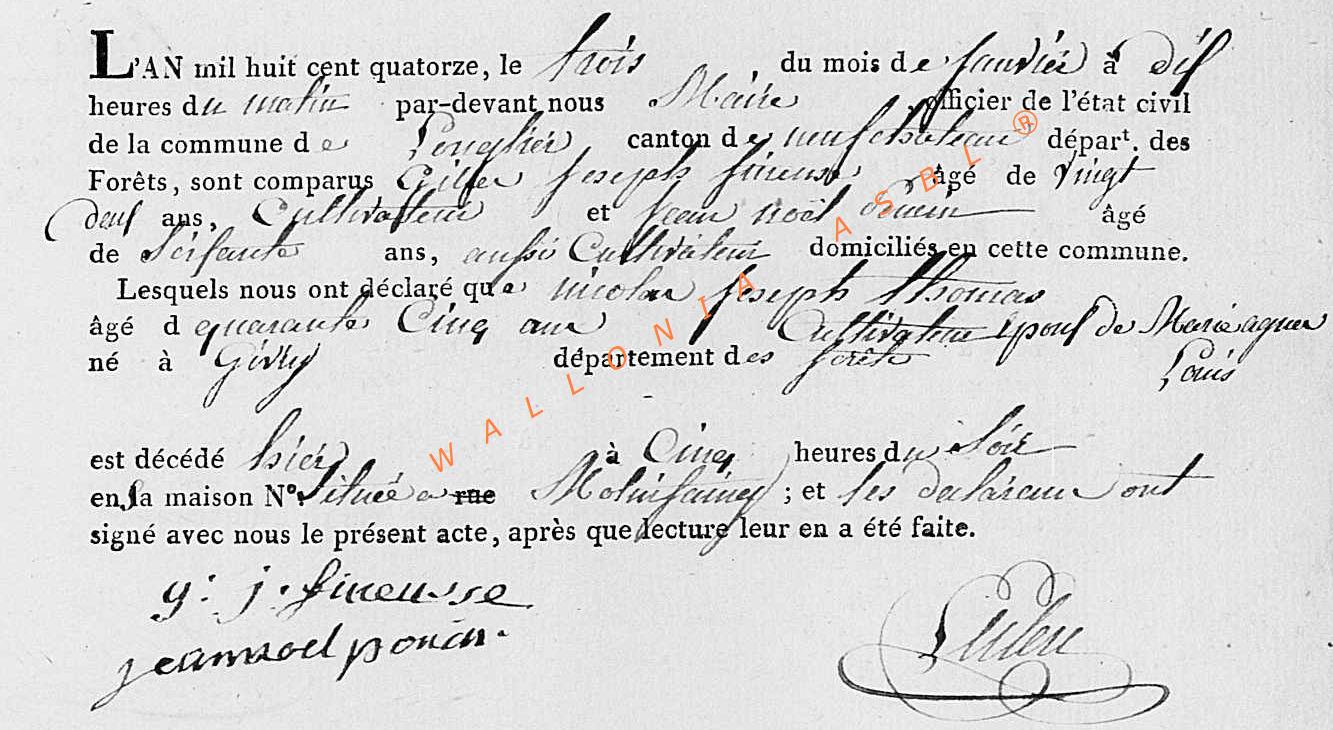 L'AN mil huit cent quatorze, le trois du mois de Janvier à dix
heures du matin par-devant nous Maire officier de l'état civil
de la commune de Longlier canton de neufchateau départ. des
Forêts, sont comparus Gilles Joseph fineuse âgé de vingt
deux ans, Cultivateur et jean noël âgé
de Soixante ans, aussi Cultivateur domiciliés en cette commune.
Lesquels nous ont déclaré que nicolas joseph thomas
âgé d quarante Cinq ans Cultivateur Epoux de Marie agnes
né à Givry département des forêts Louis
est décédé hier à Cinq heures du Soir
en sa maison N°. située a rue Molinfaing ; et les declarans ont
signé avec nous le présent acte, après que lecture leur en a été faite.
g: j. fineusse
jeannoel poncin.
WALLONIA ASBL ®